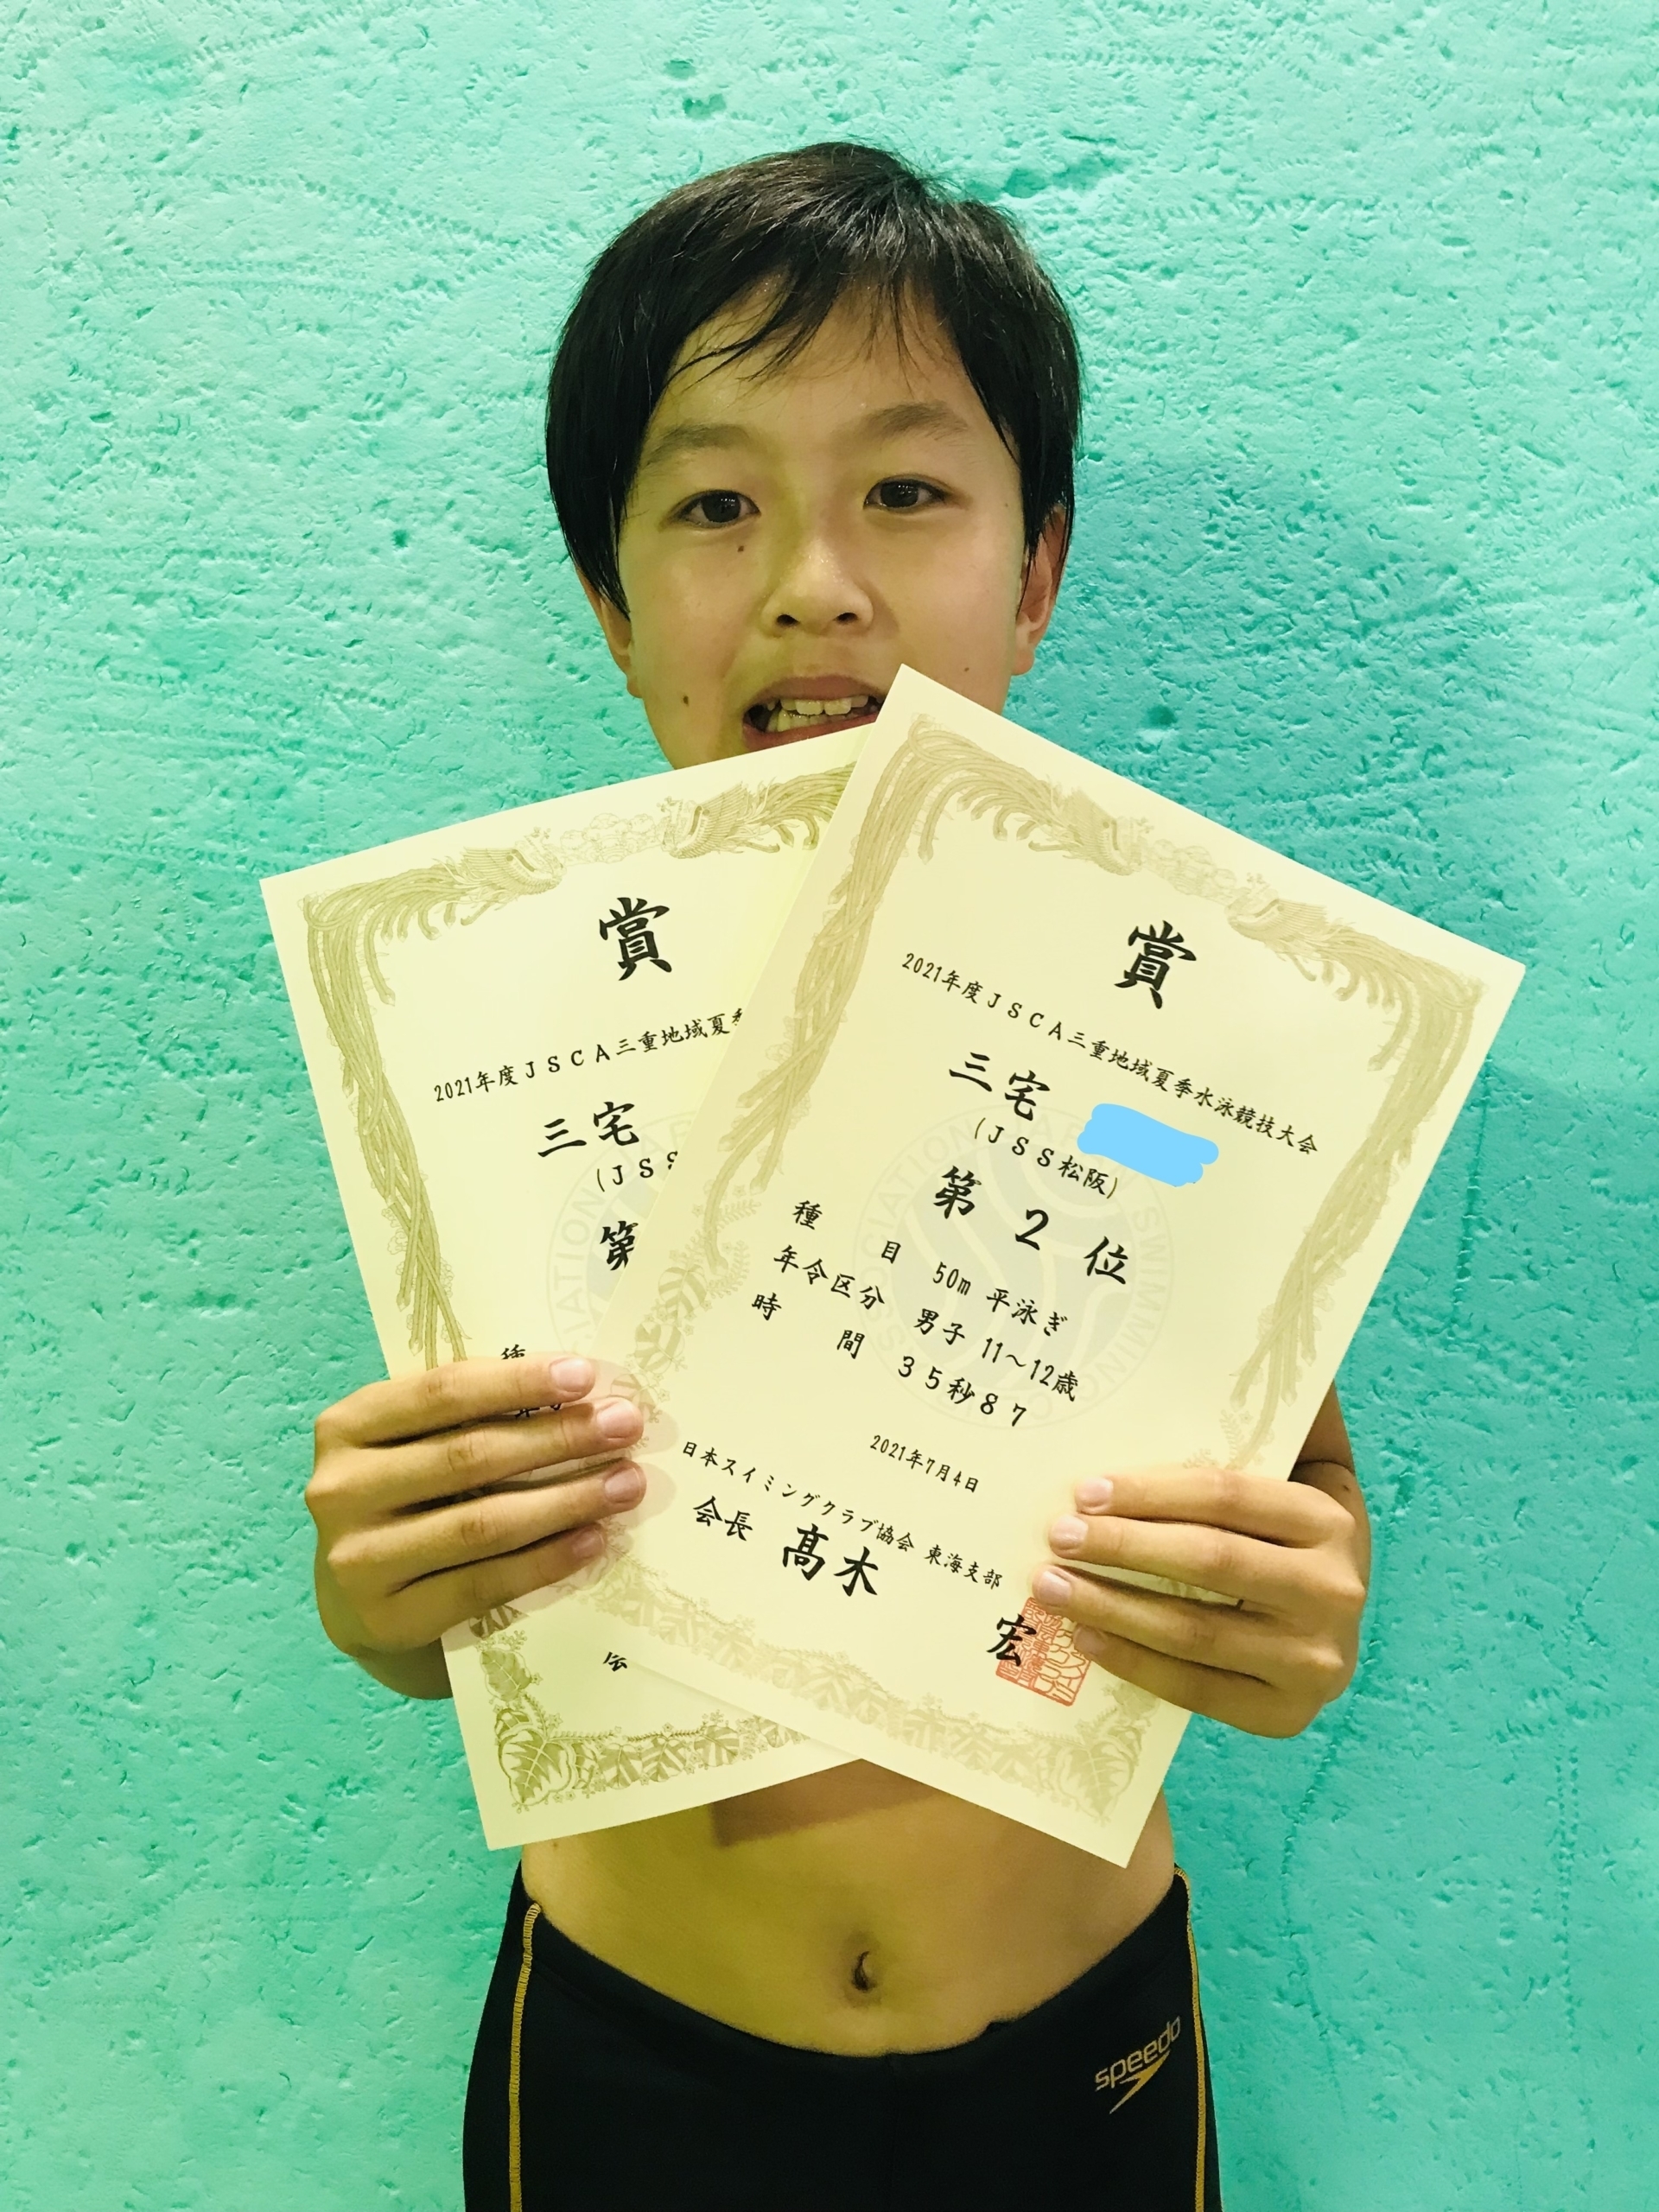 賞
2021年度JSCA三重地域夏
三宅
(JSS
第
賞
2021年度JSCA三重地域夏季水泳競技大会
三宅
(JSS松阪)
第 2 位
種 目 50m 平泳ぎ
年令区分 男子 11～12歳
時 間 35秒87
2021年7月4日
日本スイミングクラブ協会 東海支部
会長 髙木 宏
speedo